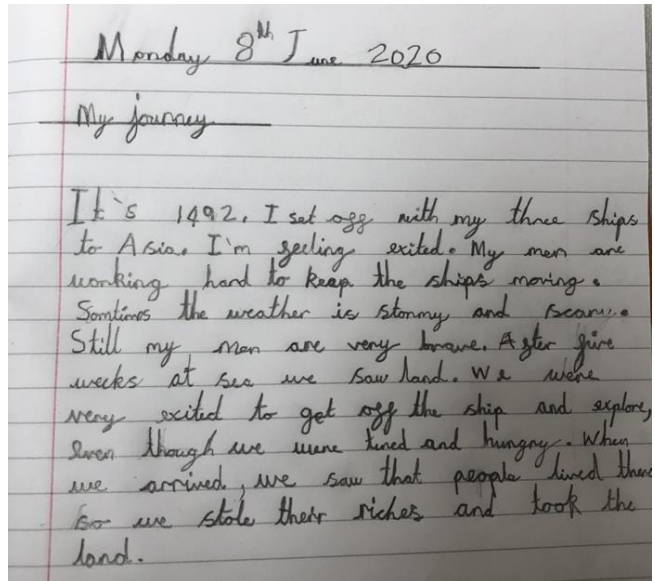 Monday 8th June 2020
My journey
It's 1492. I set off with my three ships
to Asia. I'm feeling exited. My men are
working hard to keep the ships moving.
Somtimes the weather is stormy and scary.
Still my men are very brave. After five
weeks at sea we saw land. We were
very exited to get off the ship and explore,
even though we were tired and hungry. When
we arrived, we saw that people lived there
so we stole their riches and took the
land.